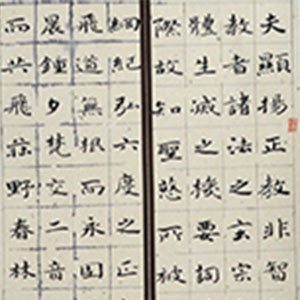 夫顯揚正教非智
教者諸法之玄宗
體生滅之機要詞
際故知聖慈所被
綱紀弘六度之正
飛道無根而永固
晨鍾夕梵交二音
而共飛莊野春林